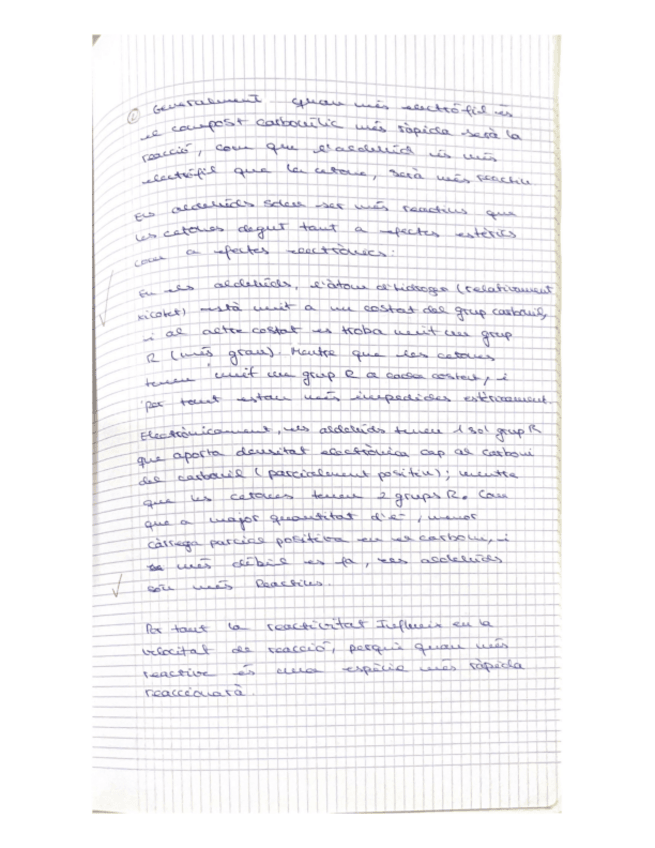 ② Generalment quan més electròfil és
el compost carbonílic més ràpida serà la
reacció, com que l'aldehid és més
electròfil que la cetona, serà més reactiu.
Els aldehids solen ser més reactius que
les cetones degut tant a efectes estèrics
com a efectes electrònics:
En els aldehids, l'àtom d'hidrogen (relativament
xicotet) està unit a un costat del grup carbonil,
i al altre costat es troba unit un grup
R (més gran). Mentre que les cetones
tenen unit un grup R a cada costat, i
per tant estan més impedides estèricament.
Electrònicament, els aldehids tenen 1 sol grup R
que aporta densitat electrònica cap al carboni
del carbonil (parcialment positiu); mentre
que les cetones tenen 2 grups R. Com
que a major quantitat d'e⁻, menor
càrrega parcial positiva en el carboni, i
més dèbil es fa, els aldehids
són més Reactius.
Per tant la reactivitat Influeix en la
velocitat de reacció, perquè quan més
reactiva és una espècie més ràpida
reaccionarà.